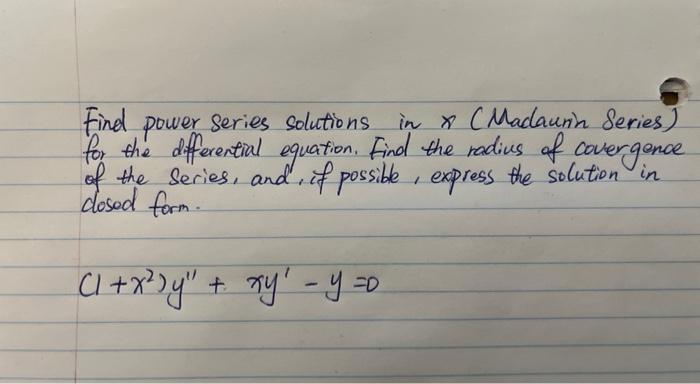 Find power series solutions in x (Madaurin Series)
for the differential equation. Find the radius of covergence
of the series, and, if possible, express the solution in
closed form.
(1+x²)y'' + xy' - y =0